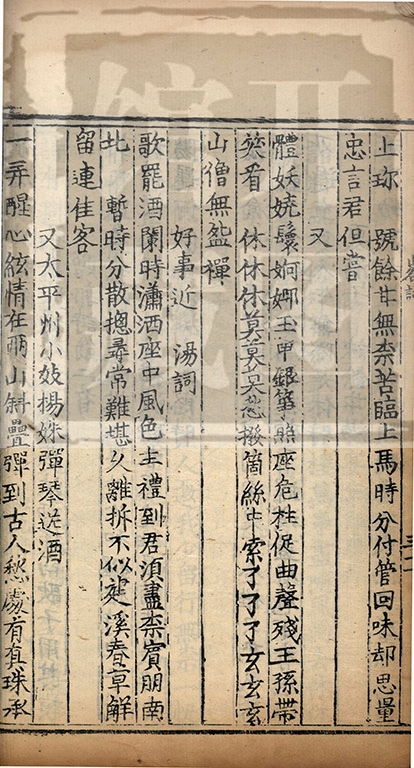 上珎 號餘甘無柰苦臨上馬時分付管回味却思量
忠言君但嘗
又
體妖嬈鬟婀娜玉甲銀箏照座危柱促曲聲殘王孫帶
笑看 休休休莫莫莫愁撥箇絲中索了了了玄玄玄
山僧無盌禪
好事近 湯詞
歌罷酒闌時瀟洒座中風色主禮到君須盡柰賓朋南
北 暫時分散揔尋常難堪久離拆不似建溪春草解
留連佳客
又太平州小妓楊姝彈琴送酒
一弄醒心絃情在兩山斜疊彈到古人愁處有真珠承